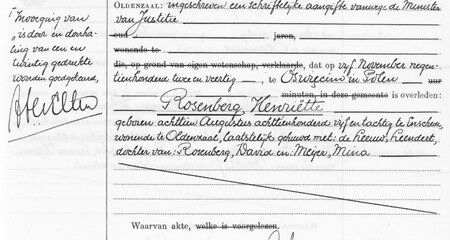 Invoeging van
"is door en doorha-
ling van een en
twintig gedrukte
woorden goedgekeurd.
OLDENZAAL: ingeschreven een schriftelijke aangifte vanwege de Minister
van Justitie
oud jaren,
wonende te
die, op grond van eigen wetenschap, verklaarde, dat op vijf November negen-
tienhonderd twee en veertig, te Oswrecim in Polen uur
minuten, in deze gemeente is overleden:
Rosenberg, Henriëtte
geboren achttien Augustus achttienhonderd vijf en tachtig te Enschede,
wonende te Oldenzaal, laatstelijk gehuwd met: de Leeuw, Leendert,
dochter van: Rosenberg, David en: Meijer, Mina
Waarvan akte, welke is voorgelezen.